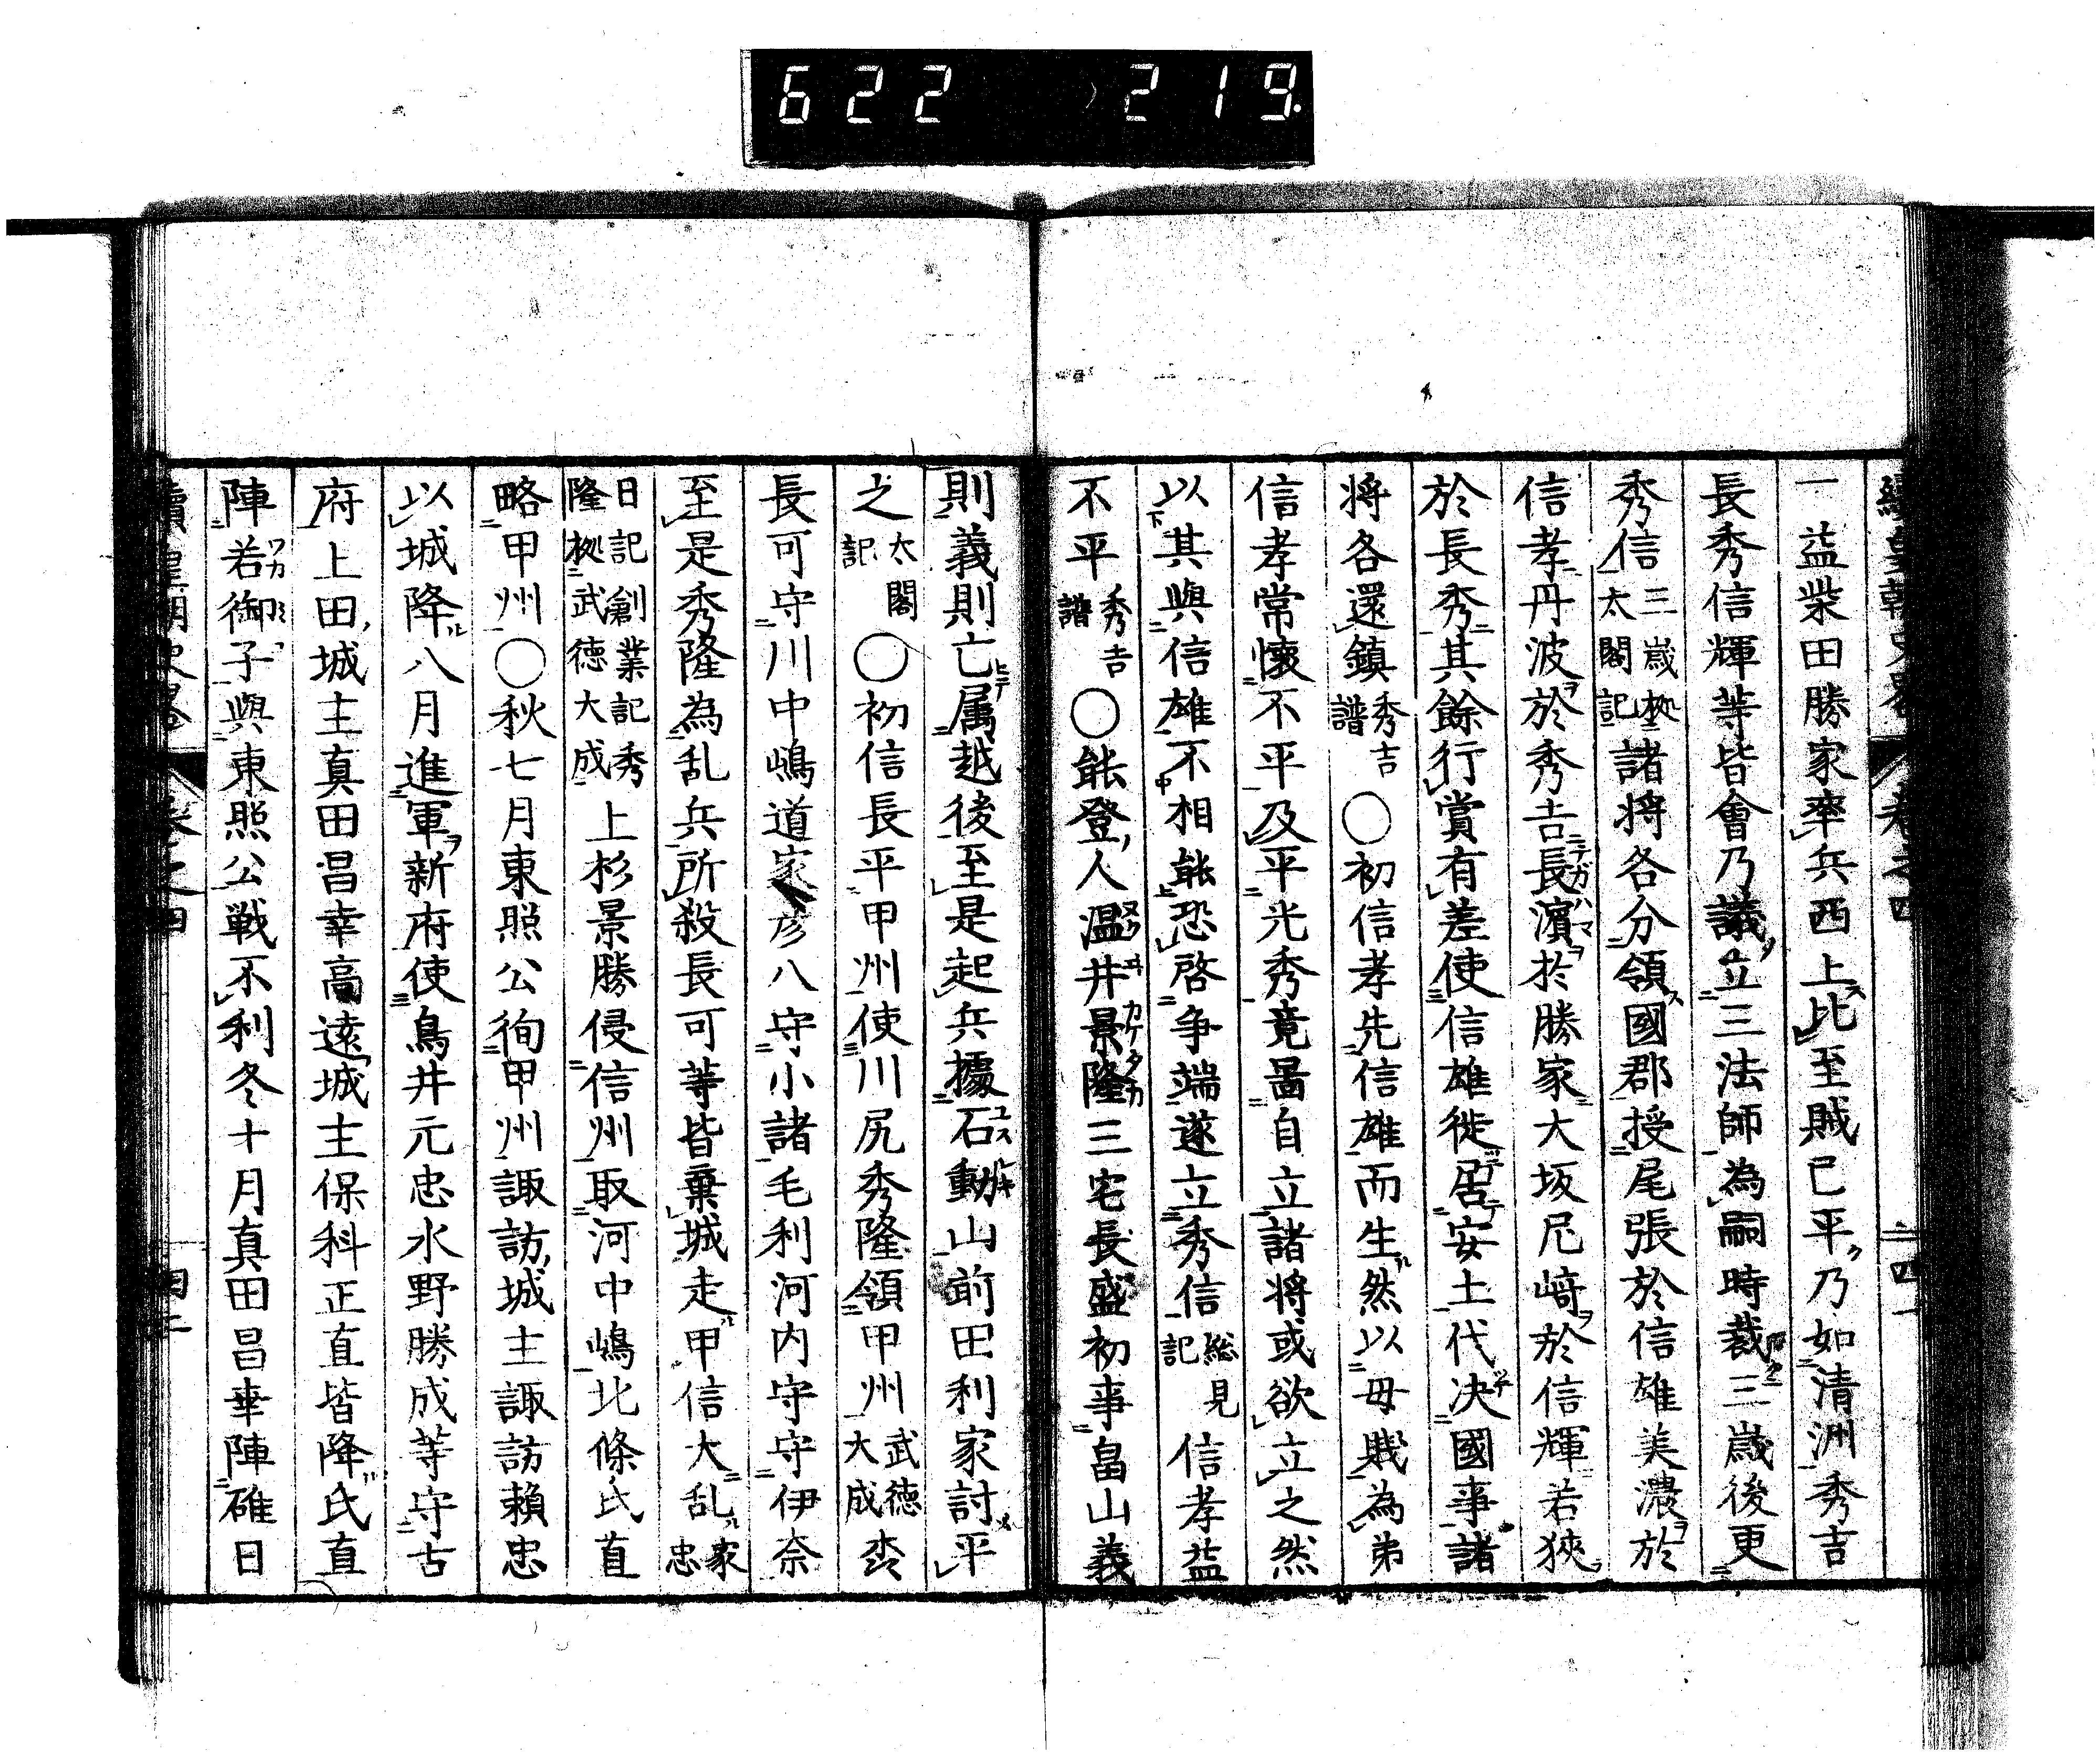 622 219
一益柴田勝家率兵西上比至賊已平乃如清洲秀吉
長秀信輝等皆會乃議立三法師為嗣時裁三歳後更
秀信三歳拠太閤記諸将各分領國郡授尾張於信雄美濃於
信孝丹波於秀吉長濱於勝家大坂尼崎於信輝若狹
於長秀其餘行賞有差使信雄徙居安土代决國事諸
将各還鎮秀吉譜○初信孝先信雄而生然以母賎為弟
信孝常懐不平及平光秀竟啚自立諸将或欲立之然
以其與信雄不相能恐啓争端遂立秀信総見記信孝益
不平秀吉譜○能登人温井景隆三宅長盛初事畠山義
則義則亡属越後至是起兵據石動山前田利家討平
之太閤記○初信長平甲州使川尻秀隆領甲州武徳大成森
長可守川中嶋道家彦八守小諸毛利河内守守伊奈
至是秀隆為乱兵所殺長可等皆棄城走甲信大乱家忠
日記創業記秀隆拠武徳大成上杉景勝侵信州取河中嶋北條氏直
略甲州○秋七月東照公徇甲州諏訪城主諏訪頼忠
以城降八月進軍新府使鳥井元忠水野勝成等守古
府上田城主真田昌幸高遠城主保科正直皆降氏直
陣若御子與東照公戦不利冬十月真田昌幸陣碓日